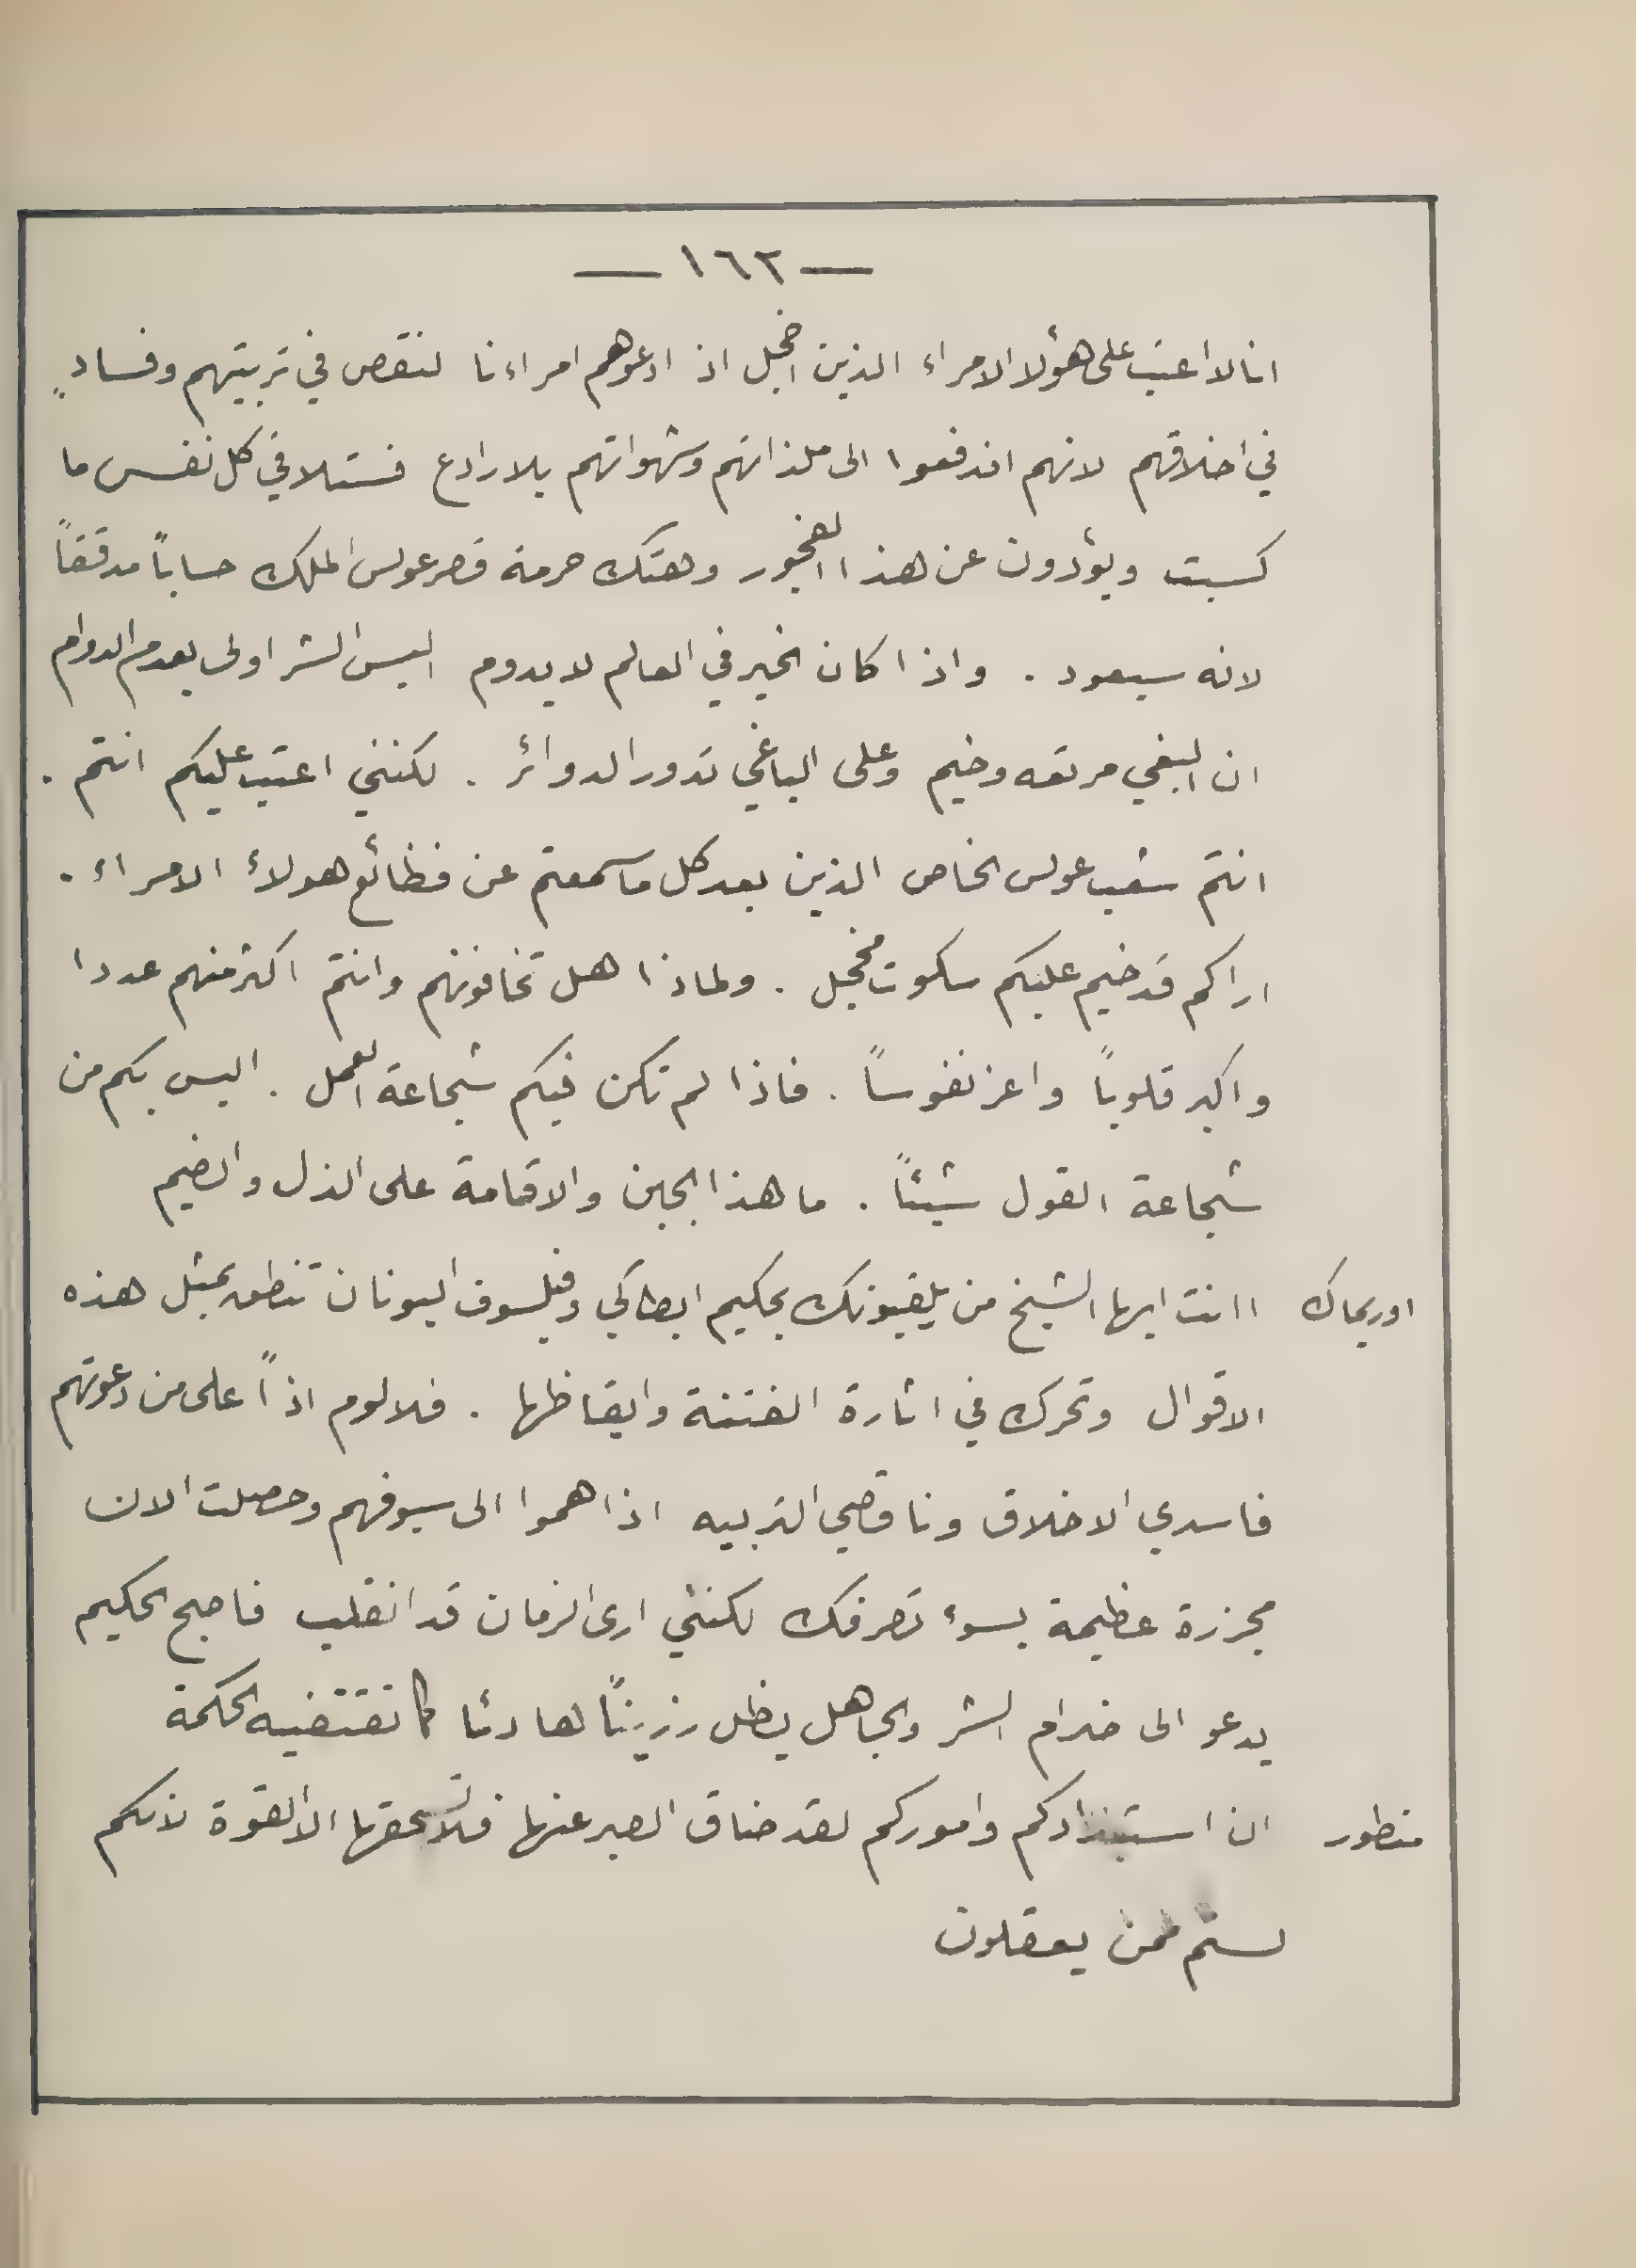 — ١٦٢ —
انا لا اعتب على هؤلا الامراء الذين اخجل اذ ادعوهم امراءنا لنقص في تربيتهم وفسادٍ
في اخلاقهم لانهم اندفعوا الى ملذاتهم وشهواتهم بلا رادع فستلاقي كل نفس ما
كسبت ويؤدون عن هذا الفجور وهتك حرمة قصر عولس الملك حساباً مدققاً
لانه سيعود . واذا كان الخير في العالم لا يدوم اليس الشر اولى بعدم الدوام
ان البغي مرتعه وخيم وعلى الباغي تدور الدوائر . لكنني اعتب عليكم انتم .
انتم شعب عولس الخاص الذين بعد كل ما سمعتم عن فظائع هولاء الامراء .
اراكم قد خيم عليكم سكوت مخجل . ولماذا هل تخافونهم وانتم اكثر منهم عددا
واكبر قلوباً واعز نفوساً . فاذا لم تكن فيكم شجاعة العمل . اليس بكم من
شجاعة القول شيئاً . ما هذا الجبن والاقامة على الذل والضيم
اوريماك اانت ايها الشيخ من يلقبونك بحكيم ايطاكي وفيلسوف اليونان تنطق بمثل هذه
الاقوال وتحرك في اثارة الفتنة وايقاظها . فلا لوم اذاً على من دعوتهم
فاسدي الاخلاق وناقصي التربيه اذا هموا الى سيوفهم وحصلت الان
مجزرة عظيمة بسوء تصرفك لكنني ارى الزمان قد انقلب فاصبح الحكيم
يدعو الى ضرام الشر والجاهل يظل رزيناً هادئا كما تقتضيه الحكمة
منطور ان استبدادكم واموركم لقد ضاق الصبر عنها فلا تسحقها الا القوة لانكم
لستم ممن يعقلون